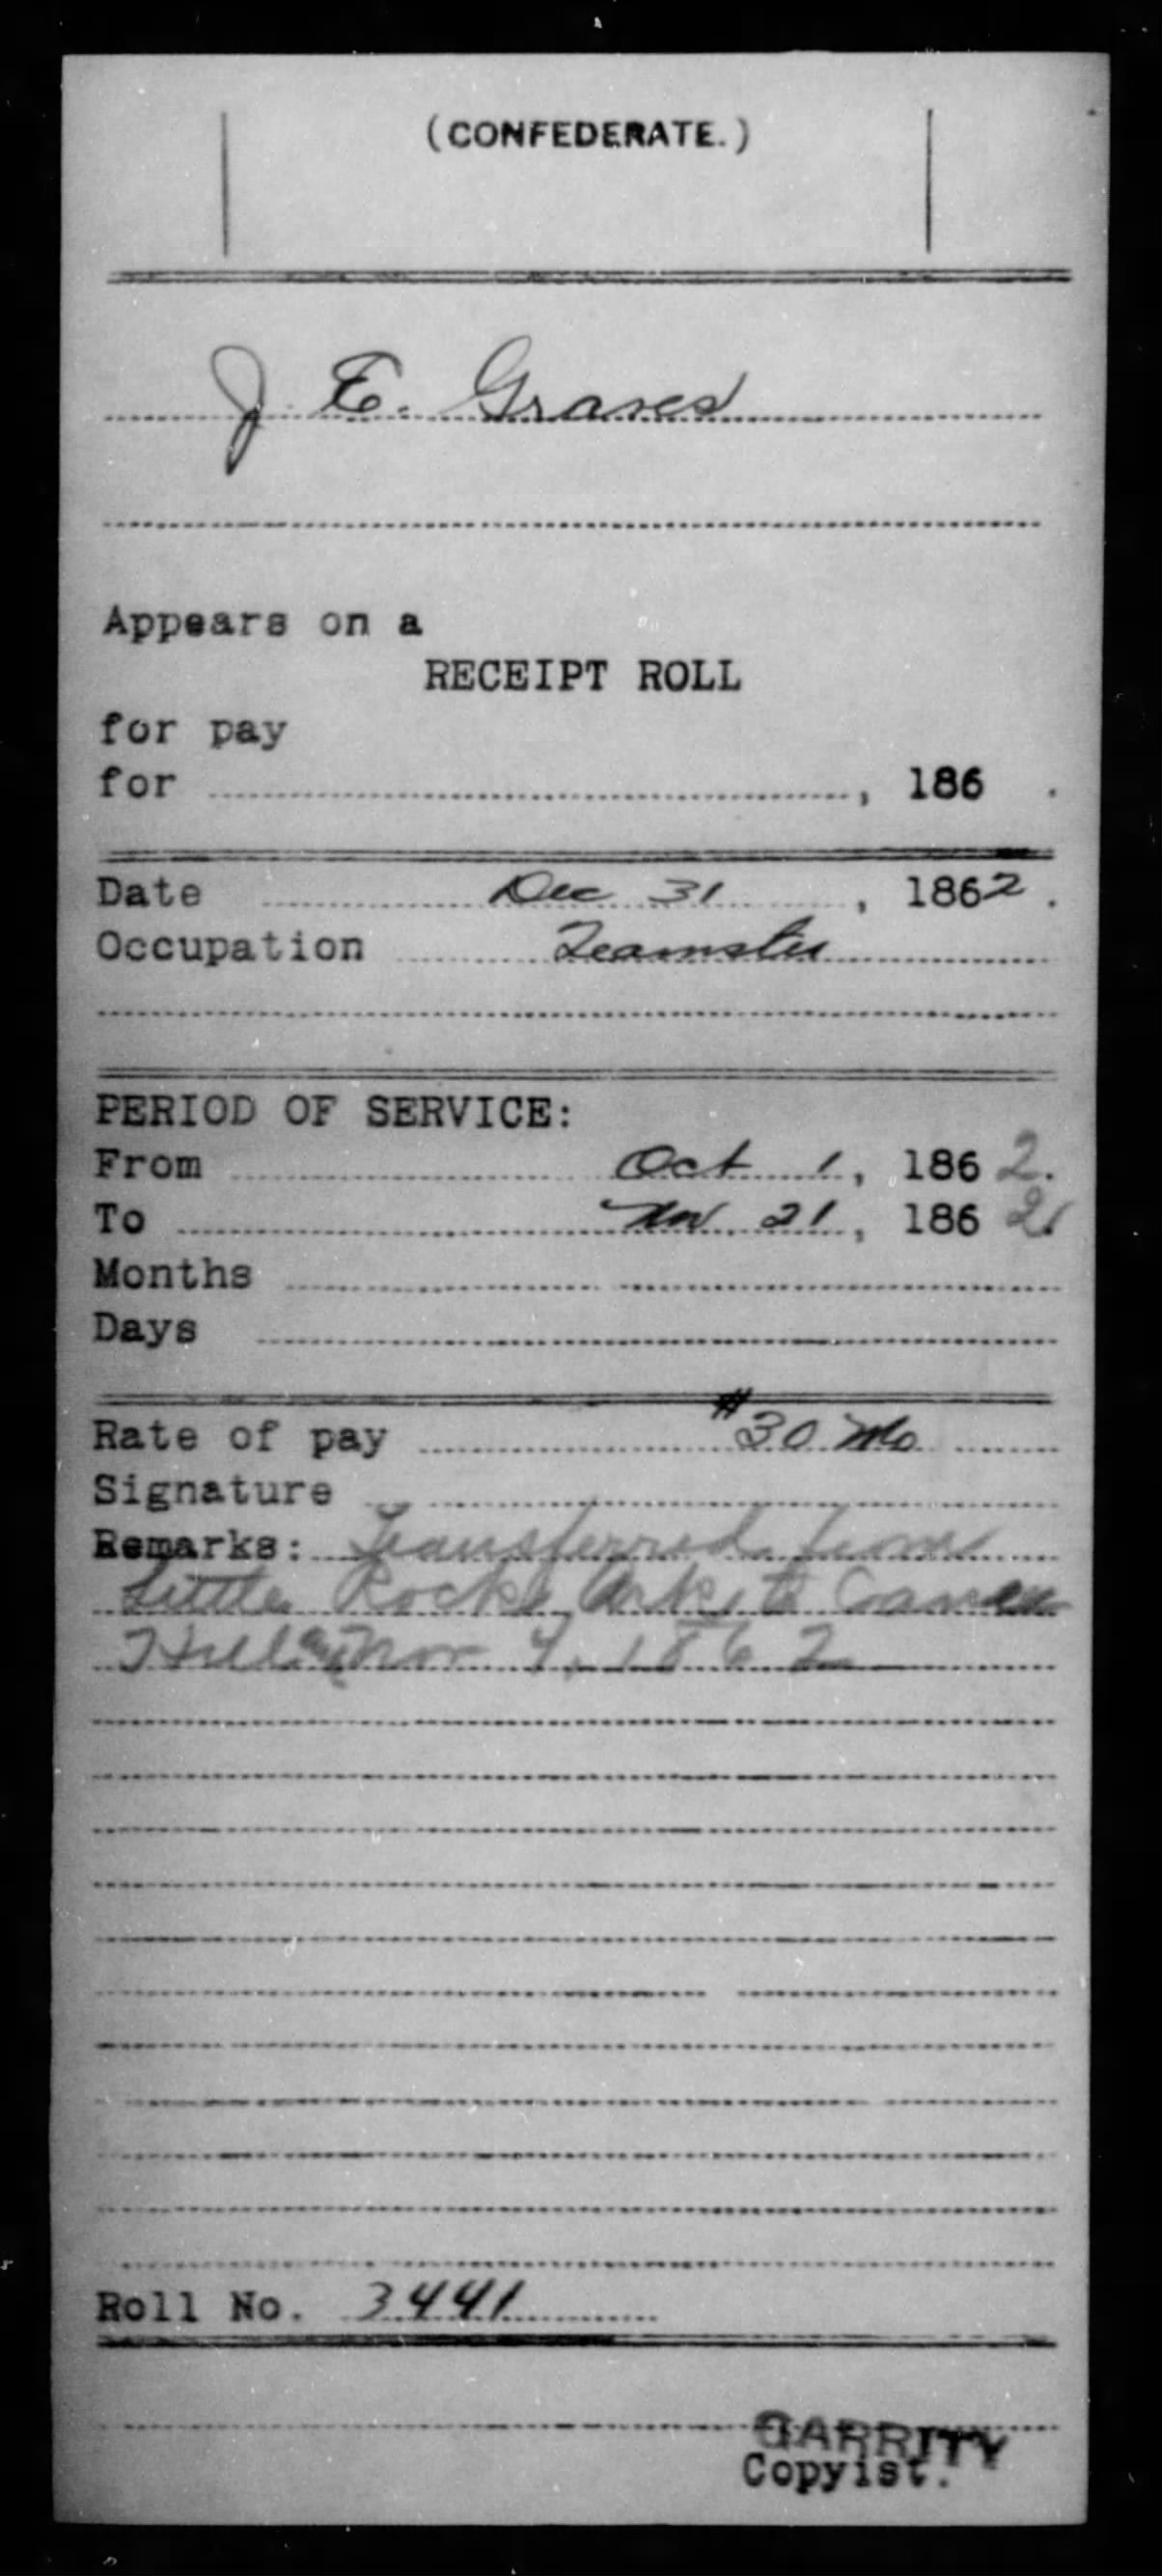 (CONFEDERATE.)
J. E. Graves
Appears on a
RECEIPT ROLL
for pay
for , 186 .
Date Dec 31 , 1862 .
Occupation Teamster
PERIOD OF SERVICE:
From Oct 1, 1862.
To Nov 21, 1862.
Months
Days
Rate of pay $30 Mo
Signature
Remarks: Transferred from
Little Rock, Ark, to Canen
Hill Nov 7, 1862
Roll No. 3441
GARRITY
Copyist.